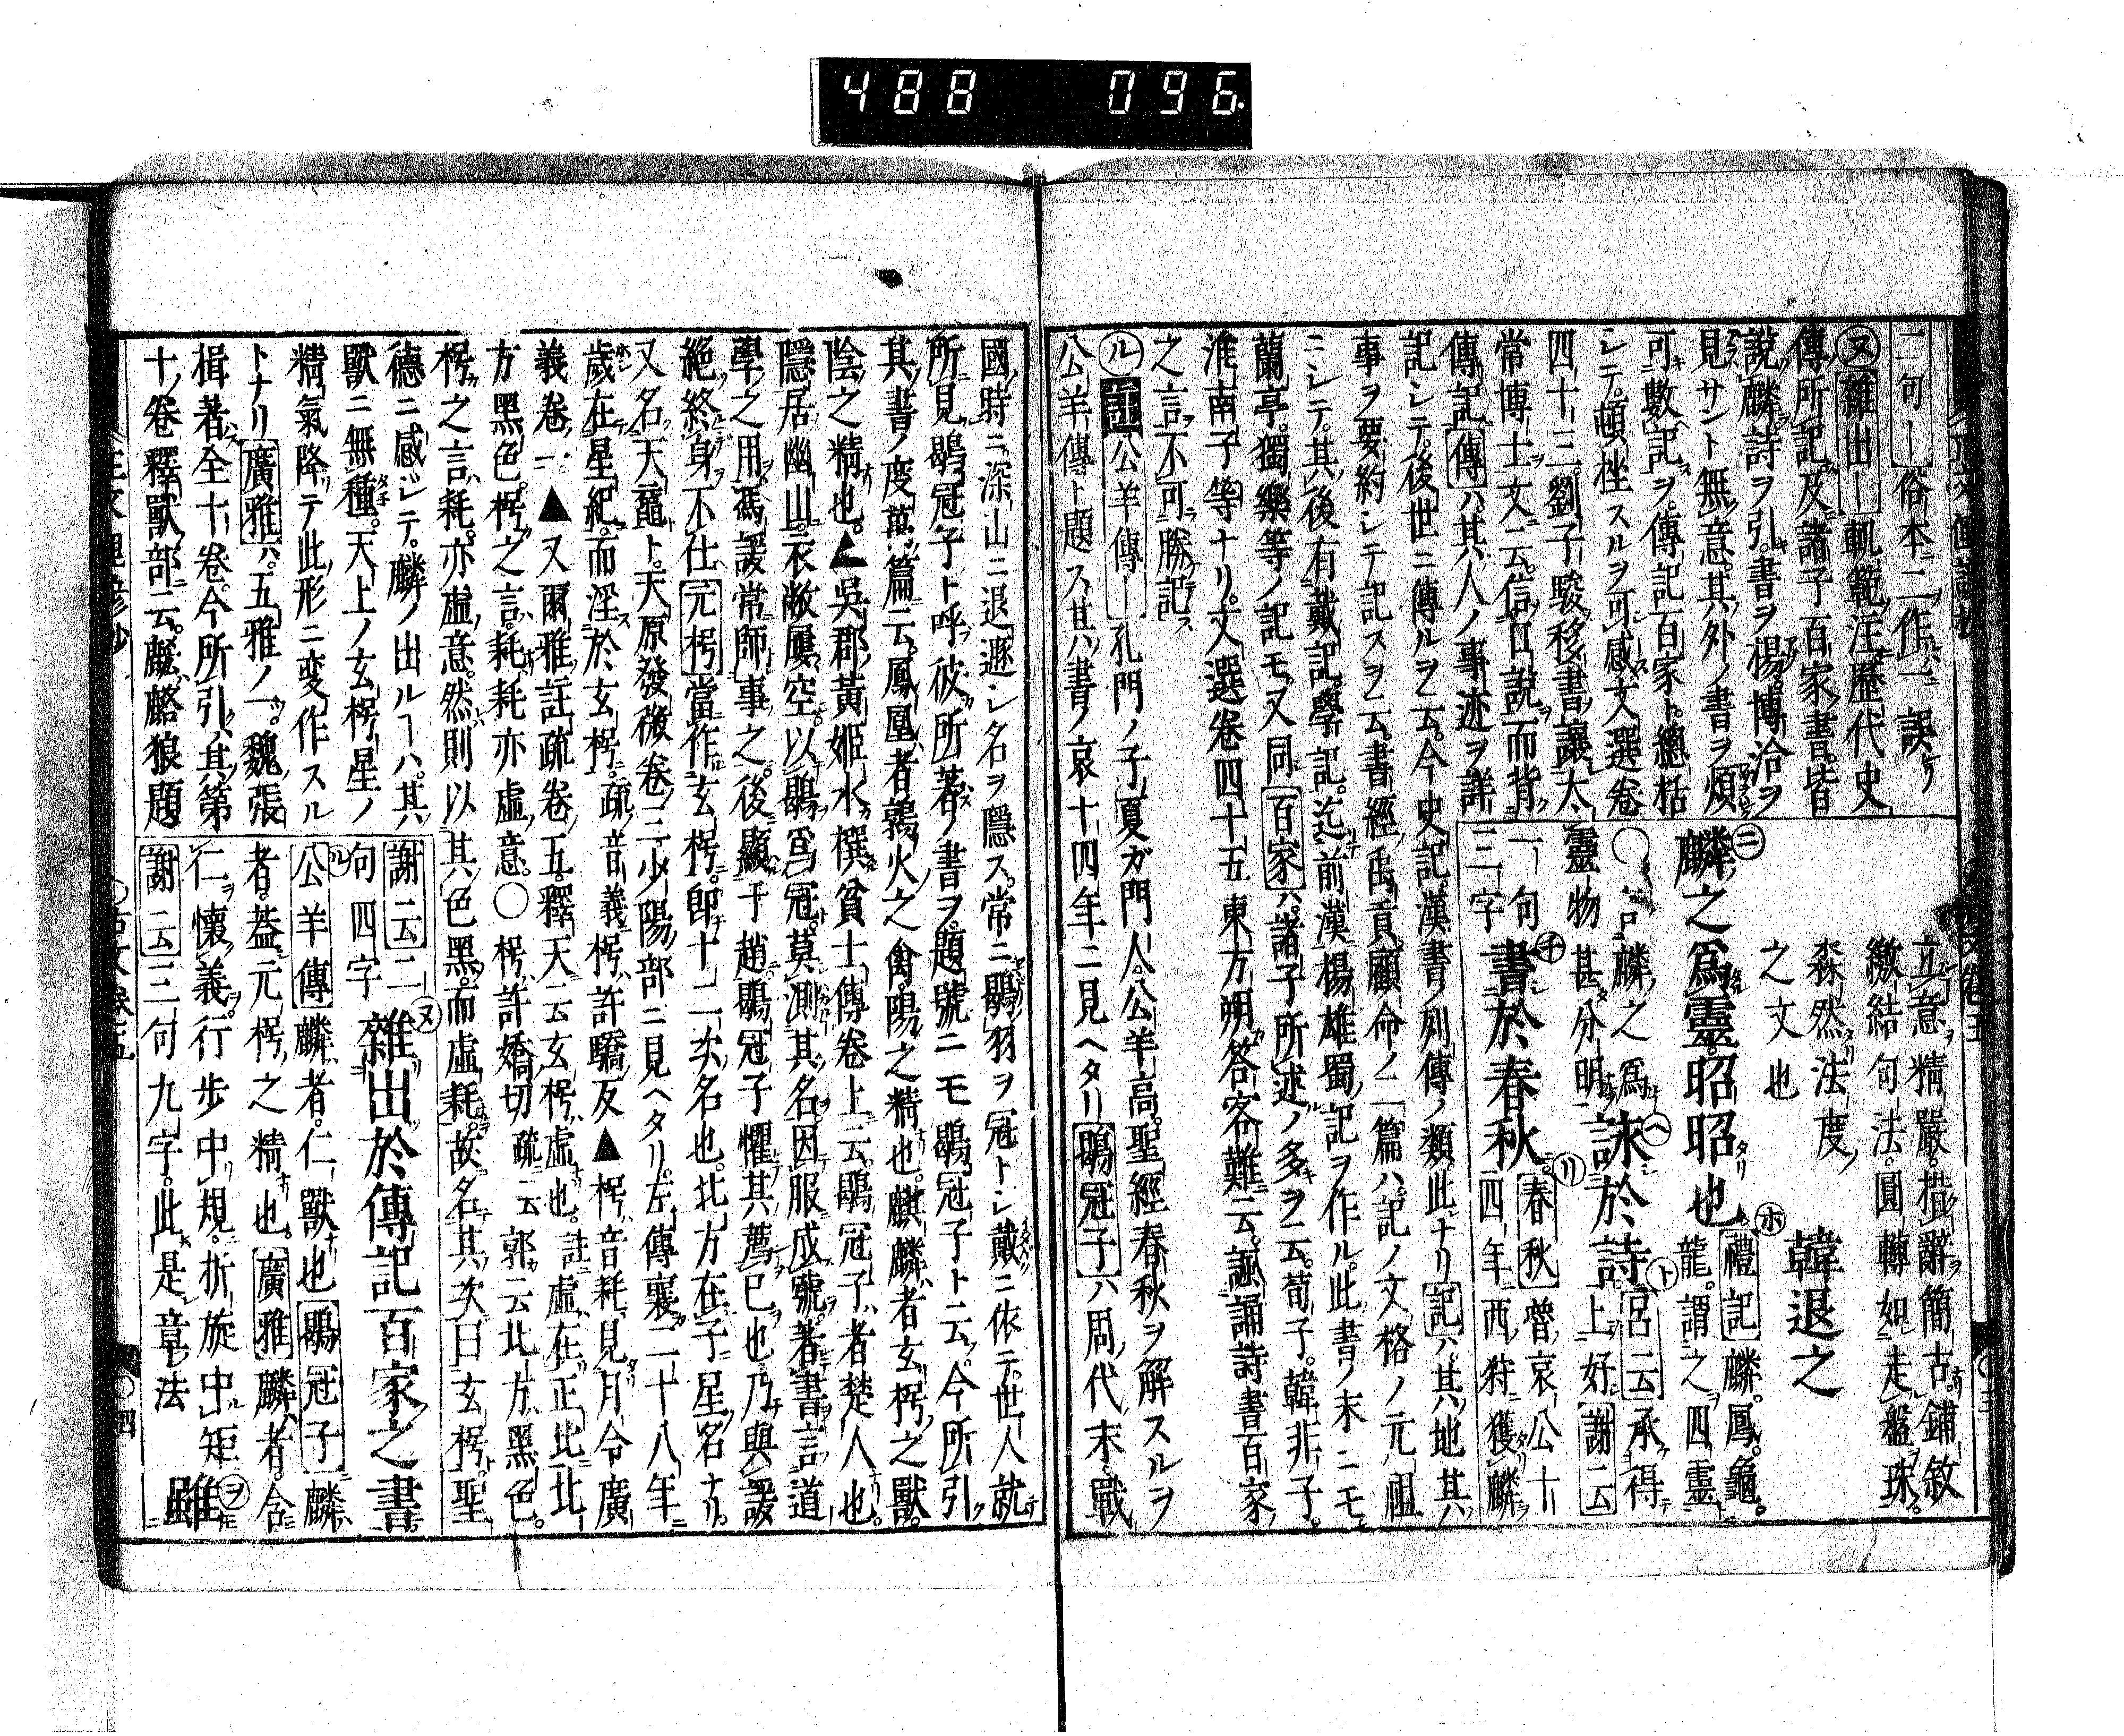 488 096.
二句ー俗本ニ二作一誤ケリ
ヌ雜出ー軌範注歷代史
傳所記及諸子百家書皆
說麟詩ヲ引書ヲ楊博洽ヲ
見サント無意其外ノ書ヲ煩
可數記ヲ傳記百家ト總括
シテ頓挫スルヲ可感文選卷
四十三劉子駿移書讓太
常博士文云信口說而背
傳記傳ハ其人ノ事迹ヲ詳
立意精嚴措辭簡古鋪敘
繳結句法圓轉如走盤珠
森然法度
之文也
韓退之
ニ麟之爲靈昭昭也ホ禮記麟鳳龜
龍謂之四靈
麟之爲
靈物甚分明
ヘ詠於詩ト呂云承得
上好謝云
一句
三字
チ書於春秋リ春秋魯哀公十
四年西狩獲麟
記シテ後世ニ傳ルヲ云今史記漢書ノ列傳ノ類此ナリ記ハ其地其
事ヲ要約シテ記スヲ云書經禹貢顧命ノ二篇ハ記ノ文格ノ元祖
ニシテ其後有戴記學記迄前漢楊雄蜀記ヲ作ル此書ノ末ニモ
蘭亭獨樂等ノ記モ又同百家ハ諸子所述ノ多キヲ云荀子韓非子
淮南子等ナリ文選卷四十五東方朔答客難云諷誦詩書百家
之言不可勝記
ル公羊傳ー孔門ノ子夏ガ門人公羊高聖經春秋ヲ解スルヲ
公羊傳ト題ス其ハ書ノ哀十四年ニ見ヘタリ鶡冠子ハ周代末戰
國時ニ深山ニ退遯シ名ヲ隱ス常ニ鶡羽ヲ冠トシ戴ニ依テ世人就
所見鶡冠子ト呼彼所著ノ書ヲ題號ニモ鶡冠子ト云今所引
其書ノ度萬篇云鳳凰者鶉火之禽陽之精也麒麟者玄枵之獸
陰之精也▲吳郡黃姬水撰貧士傳卷上云鶡冠子者楚人也
隱居幽山衣敝屨空以鶡爲冠莫測其名因服成號著書言道
學之用馮諼常師事之後顯于趙鶡冠子懼其薦已也乃與諼
絕終身不仕元枵當作玄枵卽十二次名也北方在子星名ナリ
又名天黿ト天原發微卷三少陽部ニ見ヘタリ左傳襄二十八年
歲在星紀而淫於玄枵疏音義枵許驕反▲枵音耗見月令廣
義卷一▲又爾雅註疏卷五釋天云玄枵虛也註虛在正北北
方黑色枵之言耗耗亦虛意〇枵許嬌切疏云郭云北方黑色
枵之言耗亦虛意然則以其色黑而虛耗故名其次曰玄枵聖
德ニ感ジテ麟ノ出ルーハ其
獸ニ無種天上ノ玄枵星ノ
精氣降テ此形ニ變作スル
トナリ廣雅ハ五雅ノ一魏張
揖著全十卷今所引其第
十卷釋獸部云麒麟狼題
謝云二
句四字
ヌ雜出於傳記百家之書
ル公羊傳麟者仁獸也鶡冠子麟
者葢元枵之精也廣雅麟者含
仁懷義行步中規折旋中矩
謝云三句九字此是章法
ヲ雖